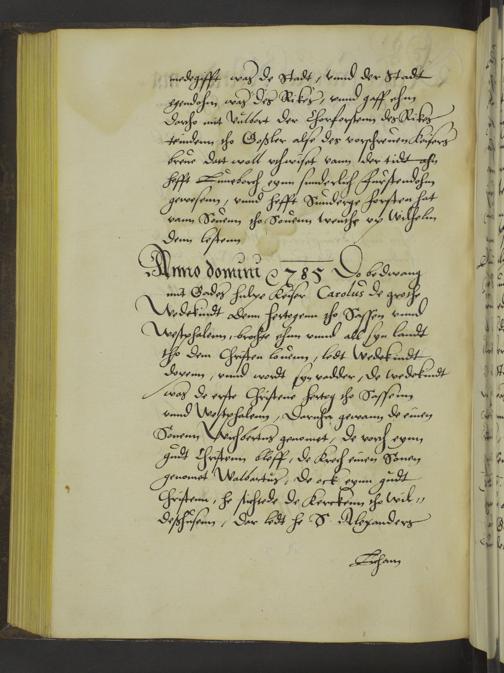 medegifft was de Stadt, vnnd der Stadt
egendohm was des Rikes, vnnd gaff ohm
dartho mit vulbort der Chorforsten des Rikes
tendem tho Goßler alse des vorschreuen Keisers
breue dat woll vthwiset vann der tidt ahn
hefft Luneborch eynn sunderlich Furstendohm
gewesenn, vnnd hefft Sunderge forsten hat
vann Sonenn tho Sonenn wenthe vp Wilhelm
denn lestenn
Anno domini 785 Do bedwang
mit Gades hulpe Keiser Carolus de grothe
Wedekindt denn hertogenn tho Sassen vnnd
Westphalenn, brochte ohnn vnnd all syn landt
tho dem Christen louenn, ledt Wedekindt
dopenn, vnnd wordt syn vadder, de wedekindt
was de erste Christene hertog tho Sassenn
vnnd Westphalenn, Darnha gewann de einen
Sonenn Wichbertus genomet, de vorth eynn
gudt Christenn bleff, de krech einen Sonen
genomet Walbartus, de ock eynn gudt
Christenn, he stichtede de Kerckenn tho Wil„
deßhusenn, Dar ledt he S. Alexanders
Licham